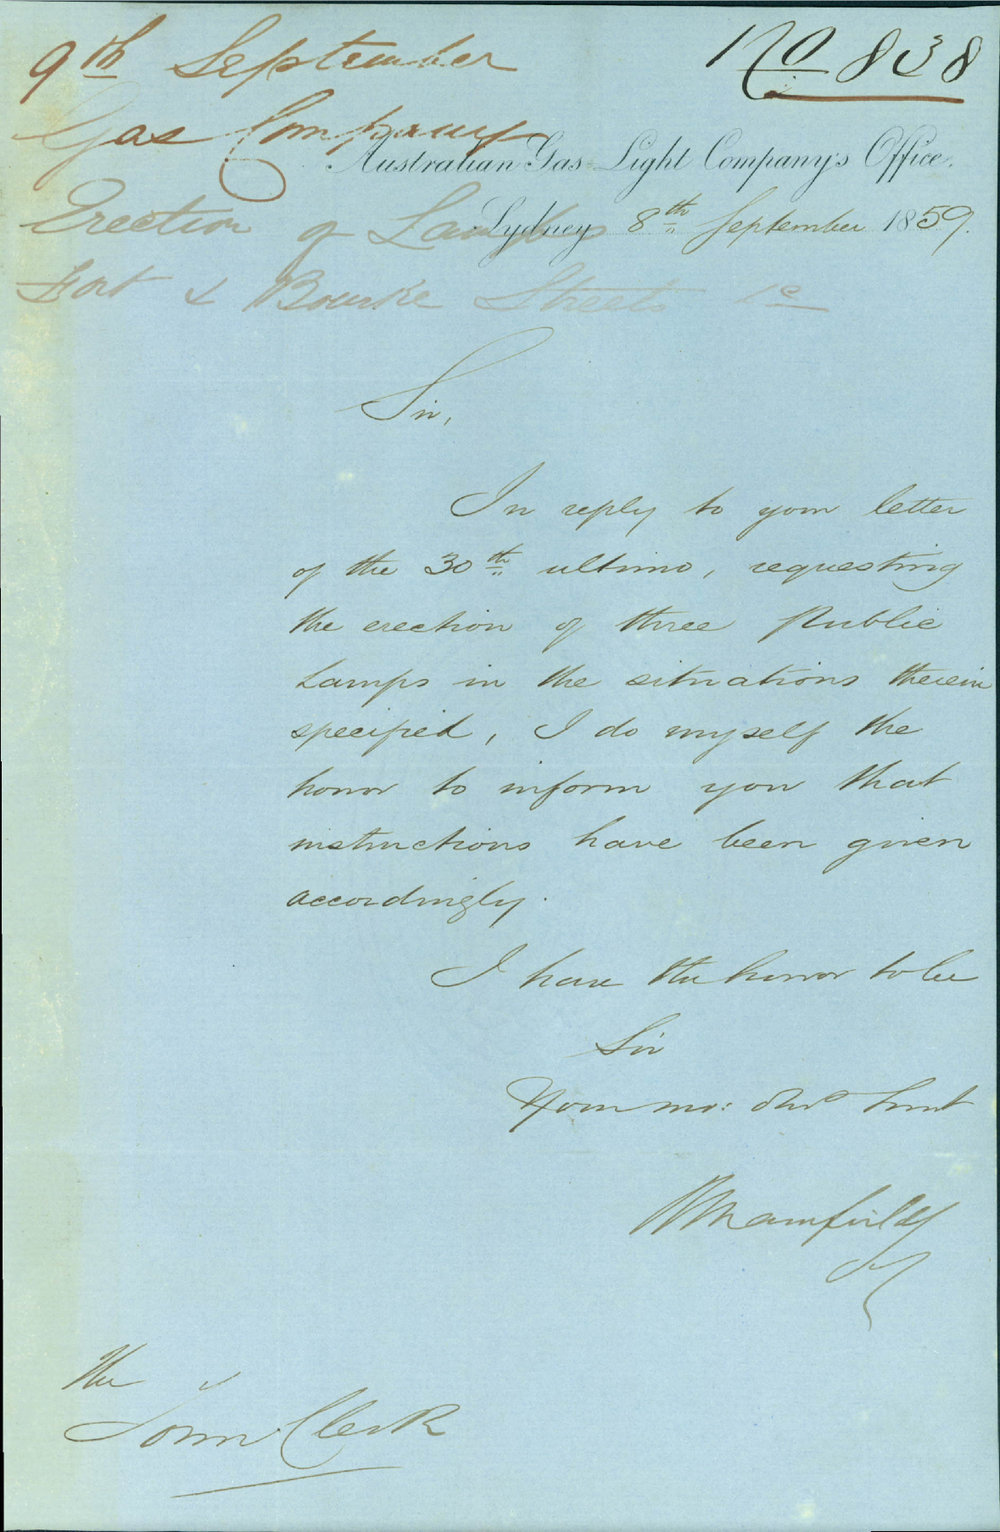 9th September
No 838
Gas Company
Australian Gas Light Company's Office.
Erection of Lamps
Sydney 8th September 1859.
Fort & Bourke Streets &c
Sir,
In reply to your letter
of the 30th ultimo, requesting
the erection of three Public
Lamps in the situations therein
specified, I do myself the
honor to inform you that
instructions have been given
accordingly.
I have the honor to be
Sir
Your mo: Obt Servt
The
Town Clerk